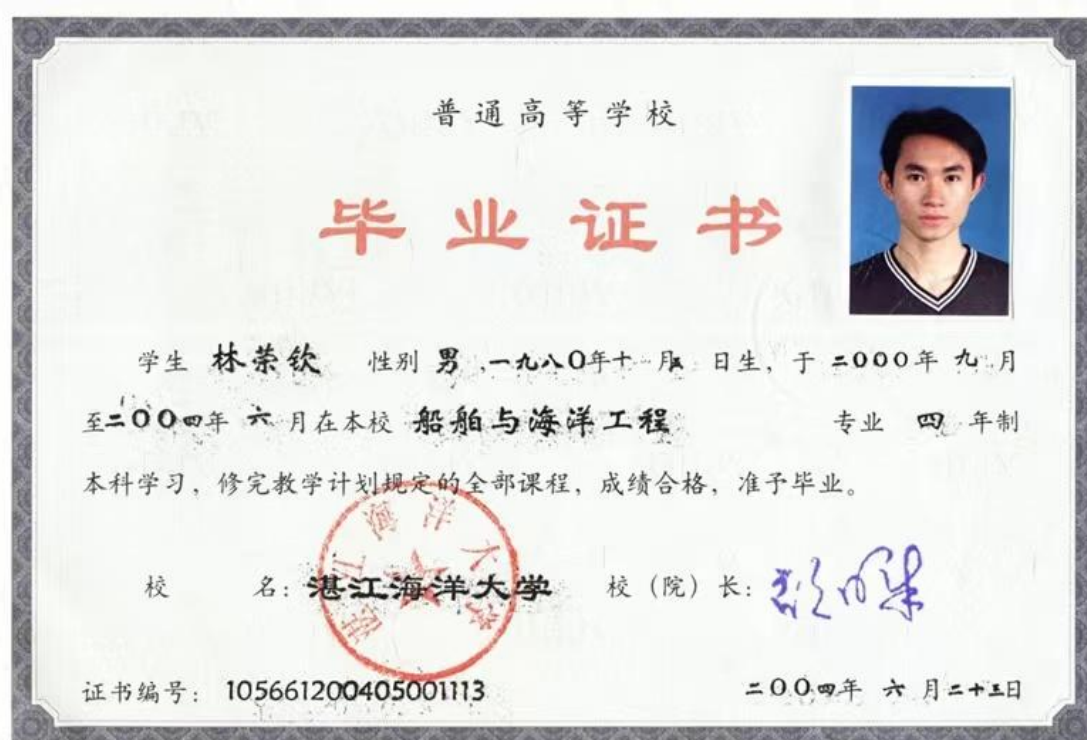 普通高等学校
毕业证书
学生 林荣钦 性别 男 ,一九八0年十一月 日生, 于 二000年 九 月
至二00四年 六 月在本校 船舶与海洋工程 专业 四 年制
本科学习, 修完教学计划规定的全部课程, 成绩合格, 准予毕业。
校 名: 湛江海洋大学 校 (院) 长:
湛江海洋大学
证书编号: 105661200405001113 二00四年 六 月二十三日